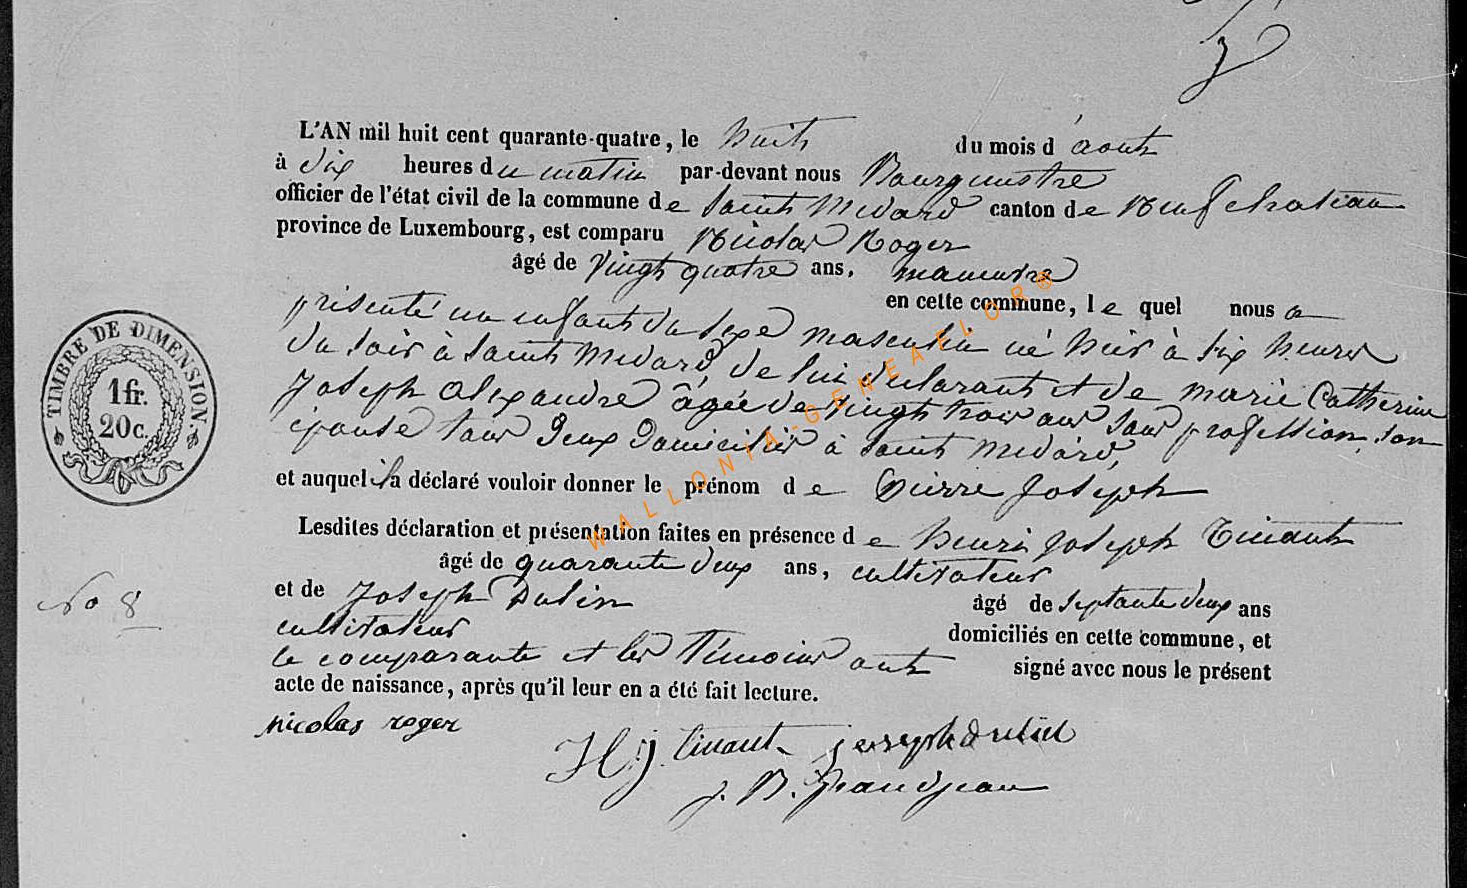 L'AN mil huit cent quarante-quatre, le huit du mois d'aout
à dix heures du matin par-devant nous Bourgmestre
officier de l'état civil de la commune de Saint Medard canton de Neufchateau
province de Luxembourg, est comparu Nicolas Roger
âgé de vingt quatre ans, manœuvre
en cette commune, le quel nous a
présenté un enfant du sexe masculin né hier à six heures
du soir à Saint Medard de lui déclarant et de Marie Catherine
Joseph Alexandre âgée de vingt trois ans sans profession, son
épouse tous deux domiciliés à Saint Medard,
et auquel il a déclaré vouloir donner le prénom de Pierre Joseph
Lesdites déclaration et présentation faites en présence de Henri Joseph Tinant
âgé de quarante deux ans, cultivateur
et de Joseph âgé de septante deux ans
cultivateur domiciliés en cette commune, et
le comparante et les Témoins ont signé avec nous le présent
acte de naissance, après qu'il leur en a été fait lecture.
nicolas roger
H. J. tinant
J. B. Grandjean
TIMBRE DE DIMENSION.
1 fr.
20 c.
No 8
WALLONIA-GENEAFLOR®